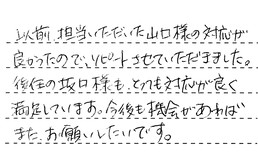 以前、担当いただいた山口様の対応が
良かったので、リピートさせていただきました。
後任の坂口様も、とっても対応が良く
満足しています。今後も機会があれば
また、お願いしたいです。